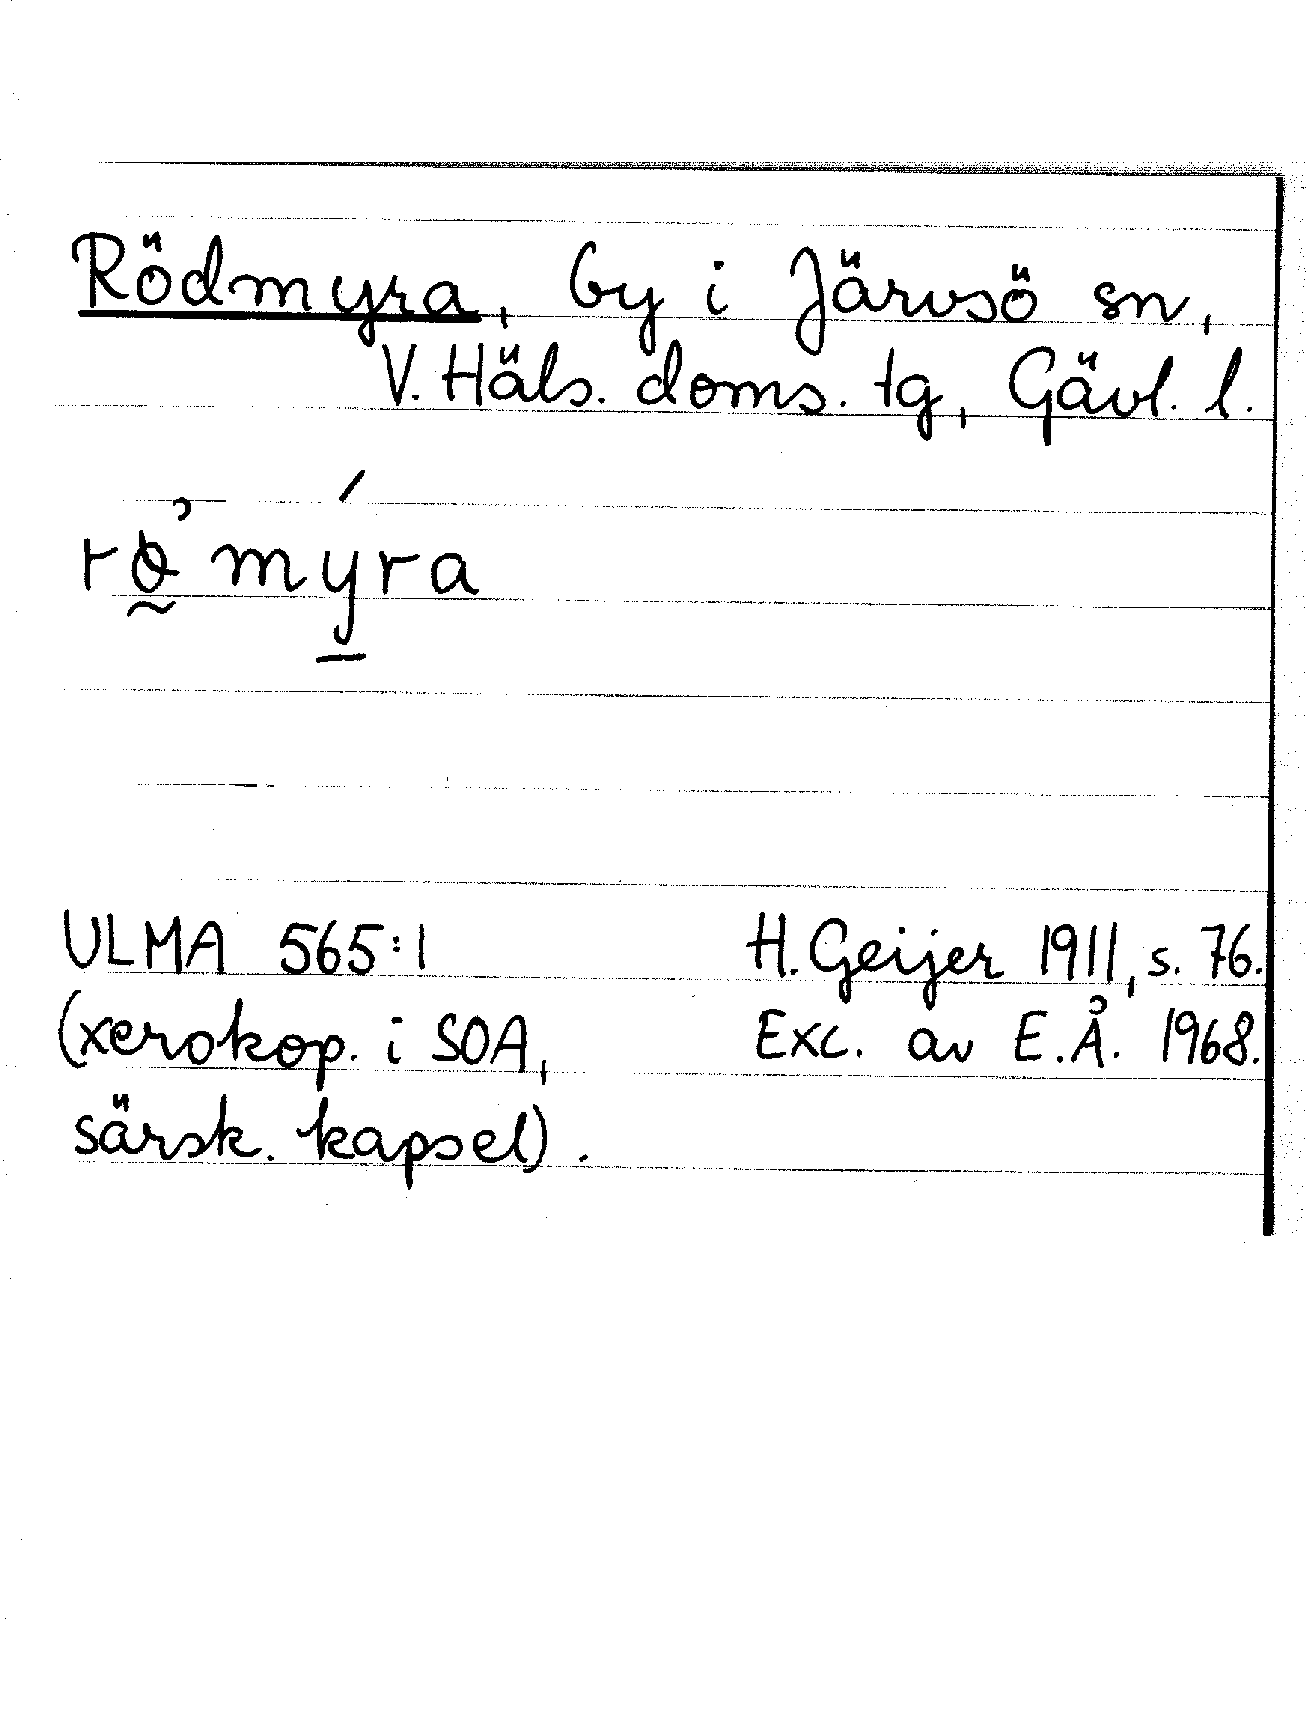 Rödmyra, by i Järvsö sn,
V. Häls. doms. tg, Gävl. l.
rø̰̉mý̱ra
ULMA 565:1 H. Geijer 1911, s. 76.
(xerokop. i SOA, Exc. av E.Å. 1968.
särsk. kapsel).